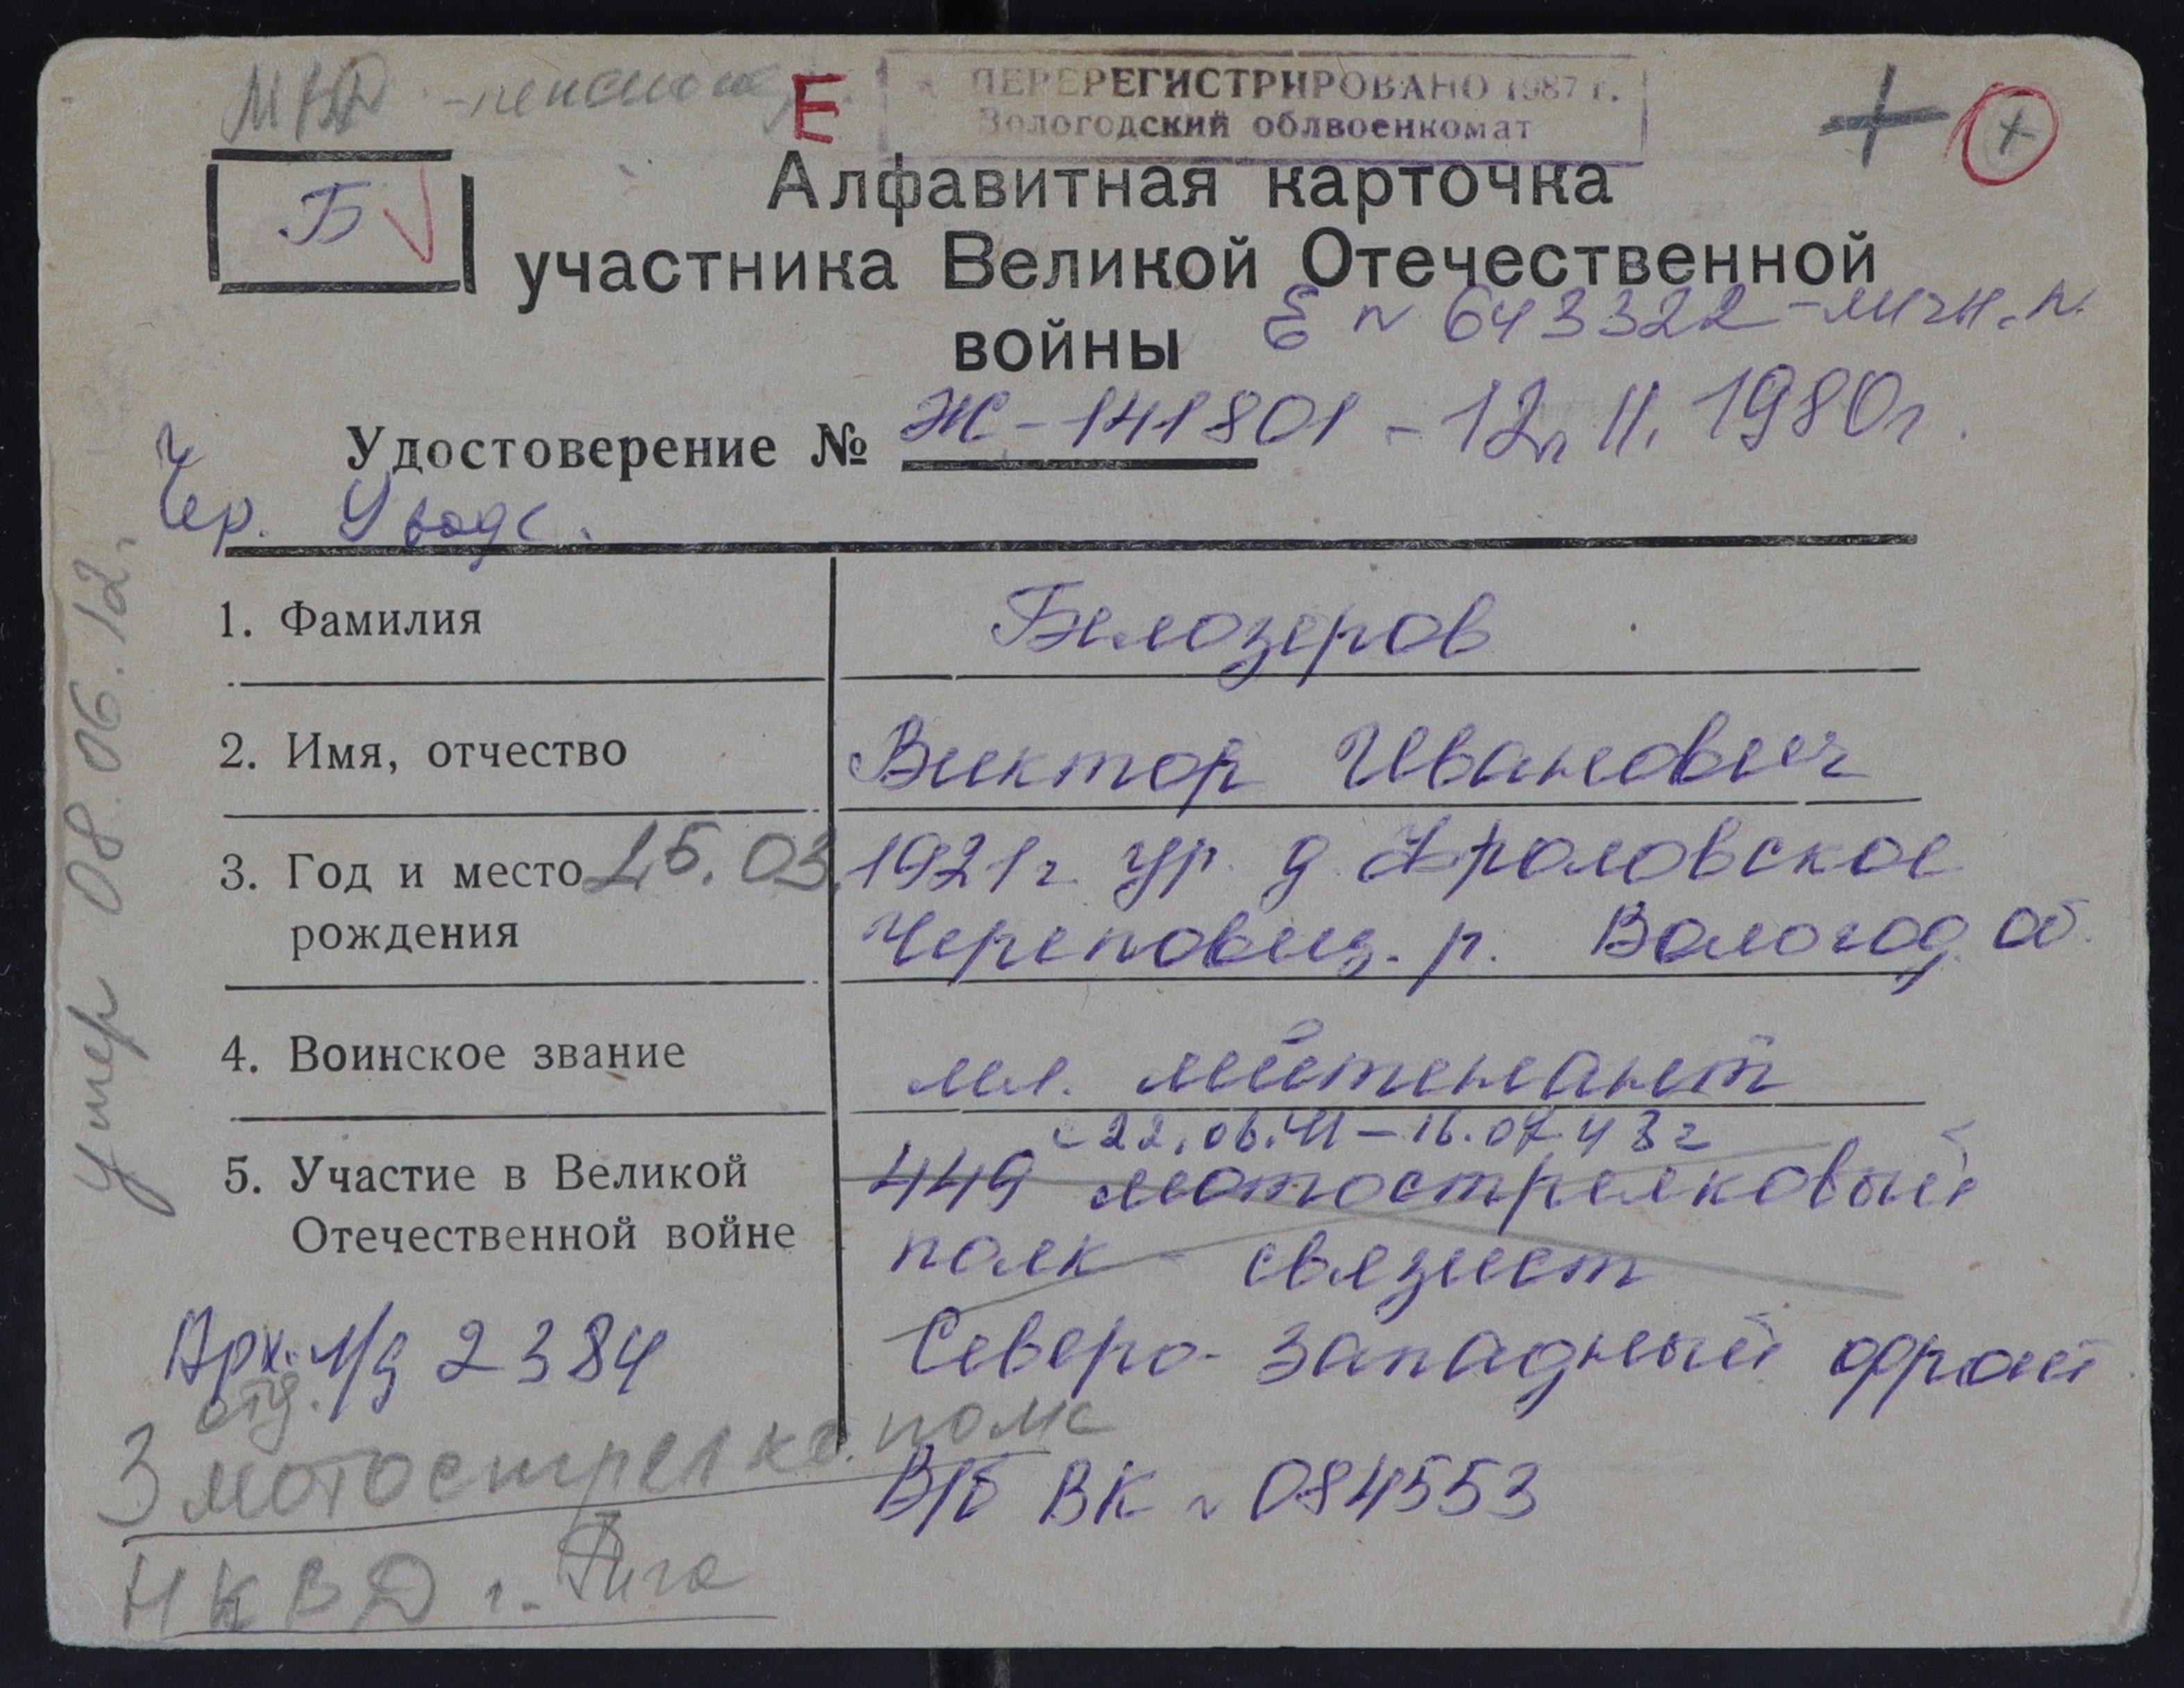 МВД - пенсионер
Е
ПЕРЕРЕГИСТРИРОВАНО 1987 г.
Вологодский облвоенкомат
+ +
Б
Алфавитная карточка
участника Великой Отечественной
войны
Е № 643322 - личн. №
Удостоверение № Ж-141801 - 12. II. 1980г.
Чер. Увоdс.
1. Фамилия Белозеров
2. Имя, отчество Виктор Иванович
3. Год и место 25.03. 1921 г. ур. д. Фроловское
рождения Череповец. р. Вологод. об.
4. Воинское звание мл. лейтенант
с 22.06.41 - 16.07.43 г
5. Участие в Великой 449 мотострелковый
Отечественной войне полк - связист
Северо-Западный фронт
Арх. л/д 2384
отд.
3 мотострелков. полк
В/б ВК № 084553
НКВД г. Рига
умер 08.06.12.